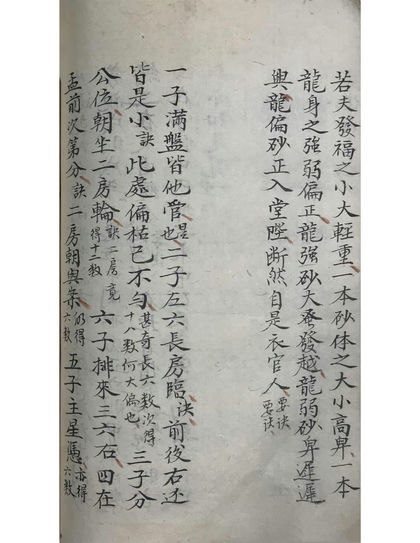 若夫發福之小大輊重一本砂体之大小高卑一本
龍身之強弱偏正龍強砂大蚤發越龍弱砂卑遲遲
與龍偏砂正入堂陛斷然自是衣官人要訣要訣
一子满盤皆他管是也二子左六長房臨訣前後右还
皆是小訣此處偏枯已不勻甚奇長六数次得十八数何大偏也三子分
公位朝坐二房輪訣二房竟得十二数六子排來三六右四在
孟前次第分訣二房朝與案仍得六数五子主星憑亦得六数